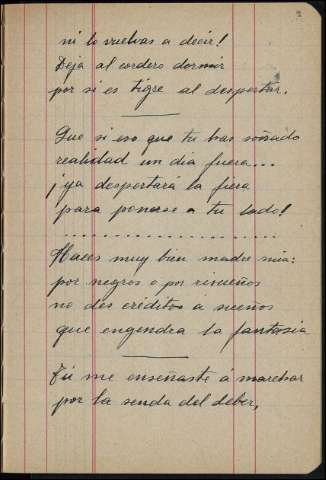 2
ni lo vuelvas a decir!
Deja al cordero dormir
por si es tigre al despertar.
Que si eso que tu has soñado
realidad un dia fuera...
¡ya despertará la fiera
para ponerse a tu lado!
....................
Haces muy bien madre mia:
por negros o por risueños
no des créditos a sueños
que engendra la fantasia
Tú me enseñaste á marchar
por la senda del deber,